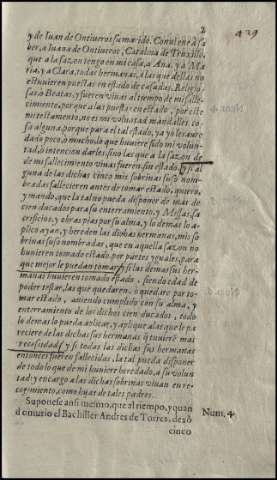 2
429
y de Iuan de Ontiueros su marido. Conuiene a sa
ber, a Iuana de Ontiueros, Catalina de Truxillo,
que a la sazon tengo en mi casa, a Ana, y a Ma
ria, y a Clara, todas hermanas, a las que dellas no
estuuieren puestas en estado de casadas, Religio
sas, ò Beatas, y fueren viuas al tiempo de mi falle
cimiento, porque a las puestas en estado, por este
mi testamento, no es mi voluntad mandalles co
sa alguna, porque para el tal estado, ya yo les aure
dado poco, ò mucho, lo que huuiere sido mi volun
tad, ò intencion darles, sino las que a la sazon de
de mi fallecimiento viuas fueren, sin estado, y si al
guna de las dichas cinco mis sobrinas suso nom
bradas fallecieren antes de tomar estado, quiero,
y mando, que la tal no pueda disponer de màs de
cien ducados para su enterramiento, y Missas, sa
crificios, y obras pias por su alma, y lo demàs lo a
plico ayan, y hereden las dichas hermanas, mis so
brinas suso nombradas, que en aquella sazon no
huuieren tomado estado por partes yguales, para
que mejor le puedan tomar, y si las demas sus her
manas huuieren tomado estado, siendo de edad de
poder testar, las que quedaren, ò quedare por to
mar estado, auiendo cumplido con su alma, y
enterramiento de los dichos cien ducados, todo
lo demàs lo pueda aplicar, y aplique a las que le pa
reciere de las dichas sus hermanas q̃ tuuiere màs
necesidad, y si todas las dichas sus hermanas
entonces fueren fallecidas, la tal pueda disponer
de todo lo que de mi huuiere heredado, a su volun
tad: y encargo a las dichas sobrinas viuan en re
cogimiento, como hijas de tales padres.
Suponese ansimesmo, que al tiempo, y quan
do murio el Bachiller Andres de Torres, dexò
Num. 4
cinco